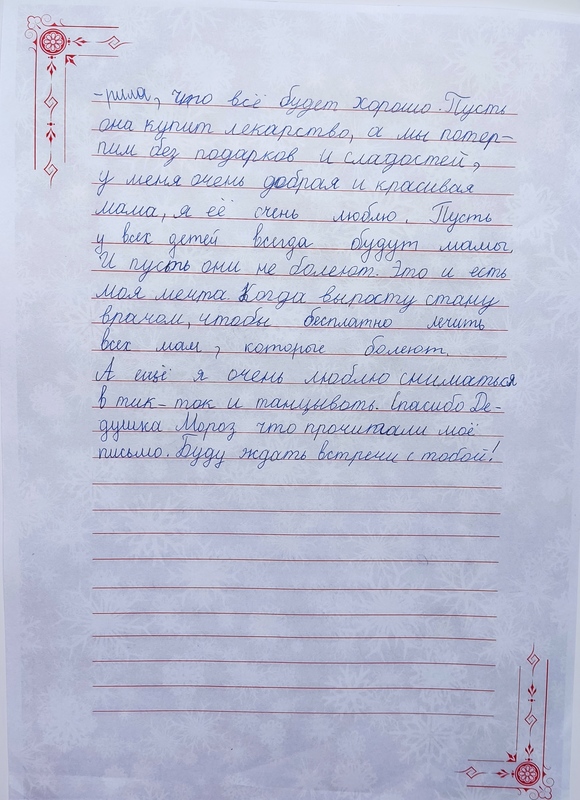 -рила, что всё будет хорошо. Пусть
она купит лекарство, а мы потер-
пим без подарков и сладостей,
у меня очень добрая и красивая
мама, я её очень люблю. Пусть
у всех детей всегда будут мамы.
И пусть они не болеют. Это и есть
моя мечта. Когда вырасту стану
врачом, чтобы бесплатно лечить
всех мам, которые болеют.
А ещё я очень люблю сниматься
в тик-ток и танцывать. Спасибо Де-
душка Мороз что прочитали моё
письмо. Буду ждать встречи с тобой!